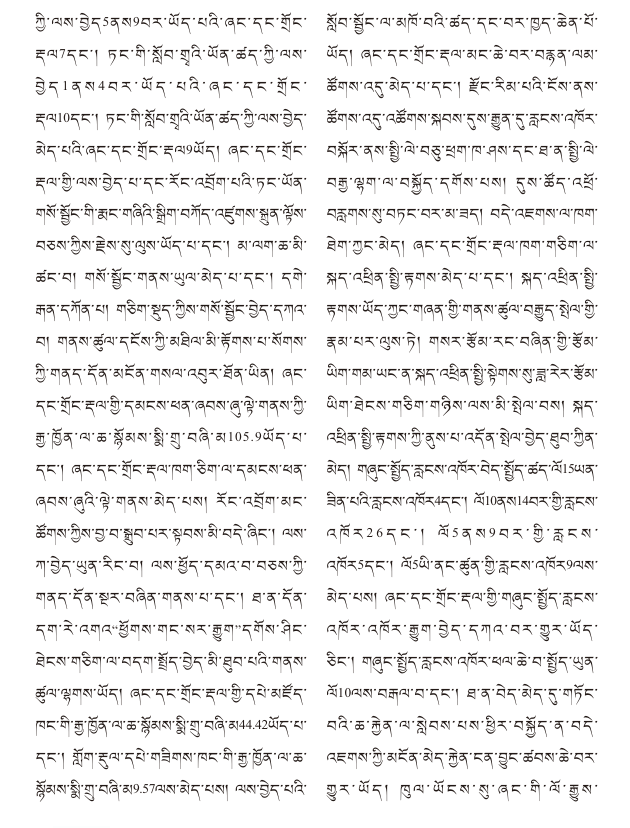 ཀྱི་ལས་བྱེད5ནས9བར་ཡོད་པའི་ཞང་དང་གྲོང་
རྡལ7དང་། ཏང་གི་སློབ་གྲྭའི་ཡོན་ཚད་ཀྱི་ལས་
བྱེད1ནས4བར་ཡོད་པའི་ཞང་དང་གྲོང་
རྡལ10དང་། ཏང་གི་སློབ་གྲྭའི་ཡོན་ཚད་ཀྱི་ལས་བྱེད་
མེད་པའི་ཞང་དང་གྲོང་རྡལ9ཡོད། ཞང་དང་གྲོང་
རྡལ་གྱི་ལས་བྱེད་པ་དང་རོང་འབྲོག་པའི་ཏང་ཡོན་
གསོ་སྦྱོང་གི་རྨང་གཞིའི་སྒྲིག་བཀོད་འཛུགས་སྐྲུན་ལྟོས་
བཅས་ཀྱིས་རྗེས་སུ་ལུས་ཡོད་པ་དང་། མ་ལག་ཆ་མི་
ཚང་བ། གསོ་སྦྱོང་གནས་ཡུལ་མེད་པ་དང་། དགེ་
རྒན་དཀོན་པ། གཅིག་སྡུད་ཀྱིས་གསོ་སྦྱོང་བྱེད་དཀའ་
བ། གནས་ཚུལ་དངོས་ཀྱི་མཐིལ་མི་རྟོགས་པ་སོགས་
ཀྱི་གནད་དོན་མངོན་གསལ་འབུར་ཐོན་ཡིན། ཞང་
དང་གྲོང་རྡལ་གྱི་དམངས་ཕན་ཞབས་ཞུ་ལྟེ་གནས་ཀྱི་
རྒྱ་ཁྱོན་ལ་ཆ་སྙོམས་སྨི་གྲུ་བཞི་མ105.9ཡོད་པ་
དང་། ཞང་དང་གྲོང་རྡལ་ཁག་ཅིག་ལ་དམངས་ཕན་
ཞབས་ཞུའི་ལྟེ་གནས་མེད་པས། རོང་འབྲོག་མང་
ཚོགས་ཀྱིས་བྱ་བ་སྒྲུབ་པར་སྟབས་མི་བདེ་ཞིང་། ལས་
ཀ་བྱེད་ཡུན་རིང་བ། ལས་ཕྱོད་དམའ་བ་བཅས་ཀྱི་
གནད་དོན་སྔར་བཞིན་གནས་པ་དང་། ཐ་ན་དོན་
དག་རེ་འགའ“ཕྱོགས་གང་སར་རྒྱུག”དགོས་ཤིང་
ཐེངས་གཅིག་ལ་བདག་སྤྲོད་བྱེད་མི་ཐུབ་པའི་གནས་
ཚུལ་ལྷགས་ཡོད། ཞང་དང་གྲོང་རྡལ་གྱི་དཔེ་མཛོད་
ཁང་གི་རྒྱ་ཁྱོན་ལ་ཆ་སྙོམས་སྨི་གྲུ་བཞི་མ44.42ཡོད་པ་
དང་། གློག་རྡུལ་དཔེ་གཟིགས་ཁང་གི་རྒྱ་ཁྱོན་ལ་ཆ་
སྙོམས་སྨི་གྲུ་བཞི་མ9.57ལས་མེད་པས། ལས་བྱེད་པའི་
སློབ་སྦྱོང་ལ་མཁོ་བའི་ཚད་དང་བར་ཁྱད་ཆེན་པོ་
ཡོད། ཞང་དང་གྲོང་རྡལ་མང་ཆེ་བར་བརྟན་ལམ་
ཚོགས་འདུ་མེད་པ་དང་། རྫོང་རིམ་པའི་ངོས་ནས་
ཚོགས་འདུ་འཚོགས་སྐབས་དུས་རྒྱུན་དུ་རླངས་འཁོར་
བསྐོར་ནས་སྤྱི་ལེ་བཅུ་ཕྲག་ཁ་ཤས་དང་ཐ་ན་སྤྱི་ལེ་
བརྒྱ་ལྷག་ལ་བསྐྱོད་དགོས་པས། དུས་ཚོད་འཕྲོ་
བརླགས་སུ་བཏང་བར་མ་ཟད། བདེ་འཇགས་ལ་ཁག་
ཐེག་ཀྱང་མེད། ཞང་དང་གྲོང་རྡལ་ཁག་གཅིག་ལ་
སྐད་འཕྲིན་སྤྱི་རྟགས་མེད་པ་དང་། སྐད་འཕྲིན་སྤྱི་
རྟགས་ཡོད་ཀྱང་གཞན་གྱི་གནས་ཚུལ་བརྒྱུད་སྤེལ་གྱི་
རྣམ་པར་ལུས་ཏེ། གསར་རྩོམ་རང་བཞིན་གྱི་རྩོམ་
ཡིག་གམ་ཡང་ན་སྐད་འཕྲིན་སྤྱི་སྟེགས་སུ་ཟླ་རེར་རྩོམ་
ཡིག་ཐེངས་གཅིག་གཉིས་ལས་མི་སྤེལ་བས། སྐད་
འཕྲིན་སྤྱི་རྟགས་ཀྱི་ནུས་པ་འདོན་སྤེལ་བྱེད་ཐུབ་ཀྱིན་
མེད། གཞུང་སྤྱོད་རླངས་འཁོར་བེད་སྤྱོད་ཚད་ལོ15ཡན་
ཟིན་པའི་རླངས་འཁོར4དང་། ལོ10ནས14བར་གྱི་རླངས་
འཁོར26དང་། ལོ5ནས9བར་གྱི་རླངས་
འཁོར5དང་། ལོ5ཡི་ནང་ཚུན་གྱི་རླངས་འཁོར9ལས་
མེད་པས། ཞང་དང་གྲོང་རྡལ་གྱི་གཞུང་སྤྱོད་རླངས་
འཁོར་འཁོར་རྒྱུག་བྱེད་དཀའ་བར་གྱུར་ཡོད་
ཅིང་། གཞུང་སྤྱོད་རླངས་འཁོར་ཕལ་ཆེ་བ་སྤྱོད་ཡུན་
ལོ10ལས་བརྒལ་བ་དང་། ཐ་ན་བེད་མེད་དུ་གཏོང་
བའི་ཆ་རྐྱེན་ལ་སླེབས་པས་ཕྱིར་བསྐྱོད་ན་བདེ་
འཇགས་ཀྱི་མངོན་མེད་རྐྱེན་ངན་བྱུང་ཚབས་ཆེ་བར་
གྱུར་ཡོད། ཁུལ་ཡོངས་སུ་ཞང་གི་ལོ་རྒྱུས་